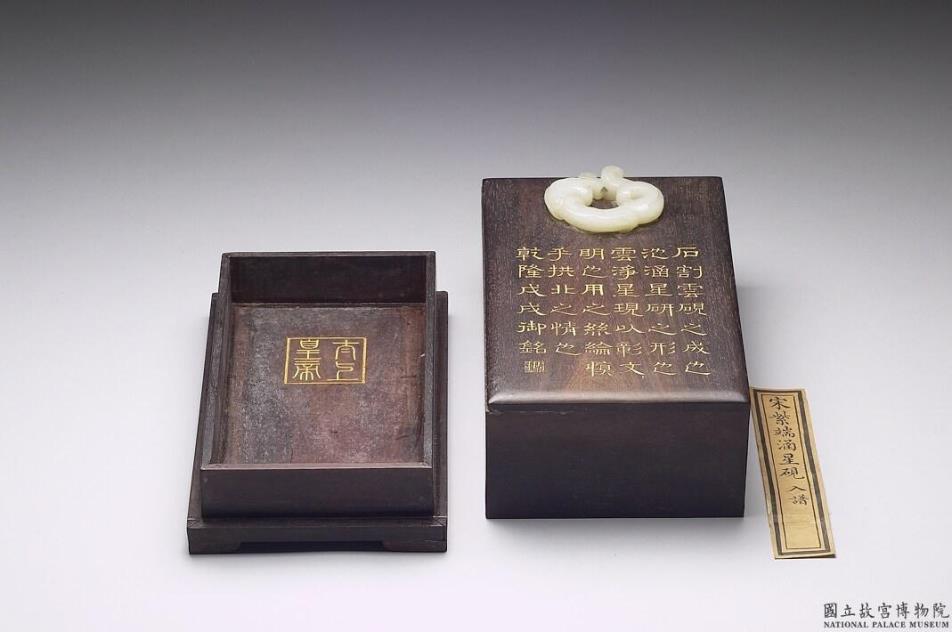 石割雲硯之成也
池涵星研之形也
雲淨星現以彰文
明也用之絲綸慎
乎拱北之情也
乾隆戊戌御銘
太上
皇帝
宋紫端涵星硯 入譜
國立故宮博物院
NATIONAL PALACE MUSEUM